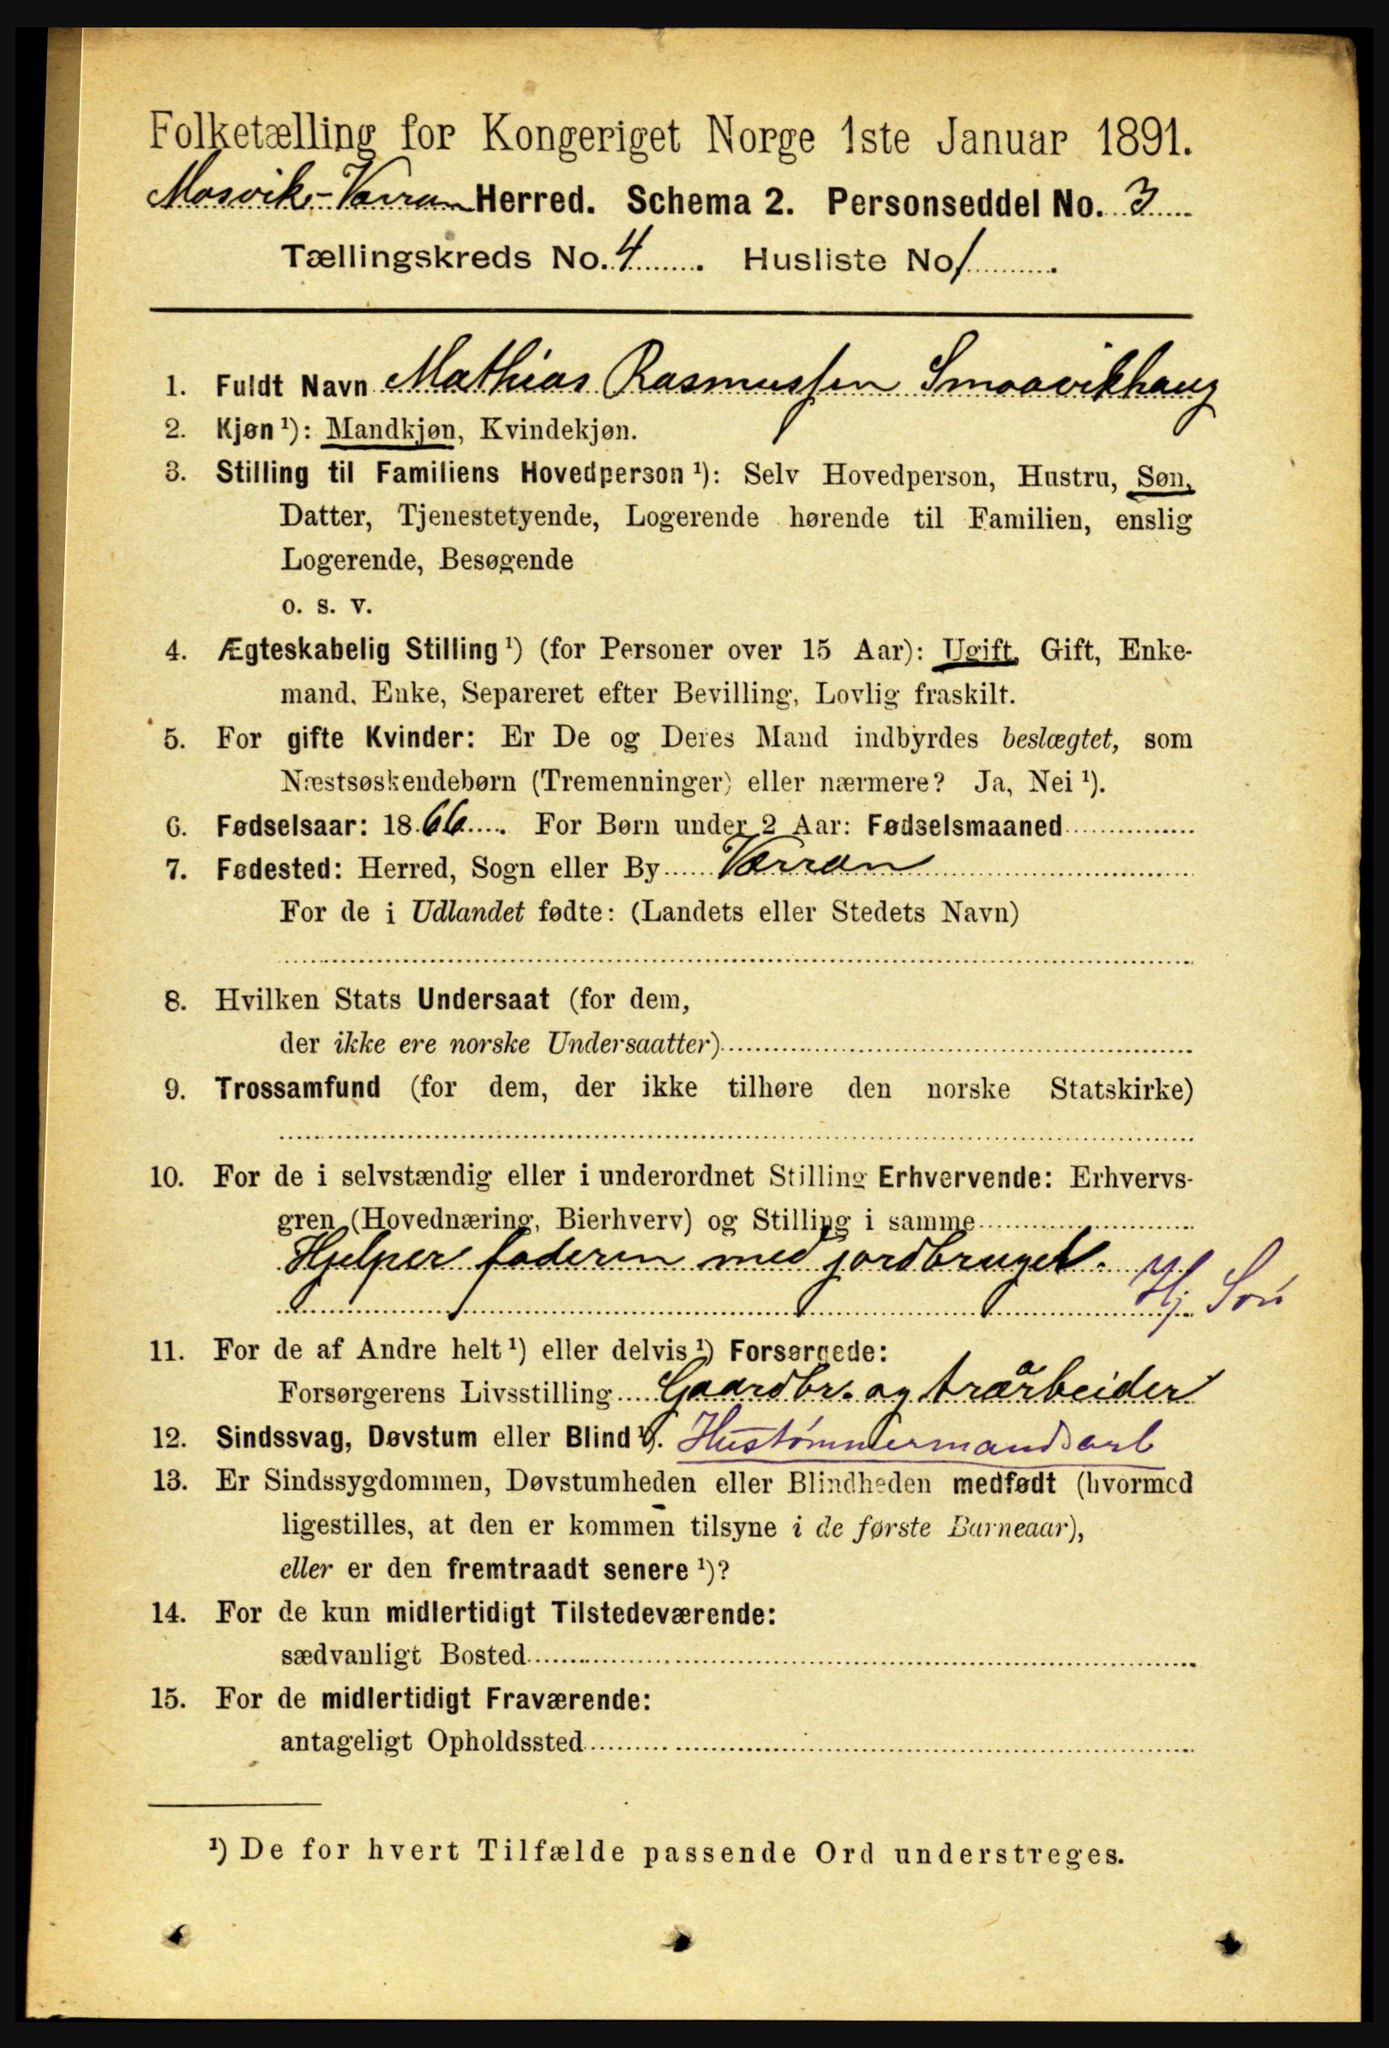 Folketælling for Kongeriget Norge 1ste Januar 1891.
Mosvik-Værran Herred. Schema 2. Personseddel No. 3
Tællingskreds No. 4. Husliste No 1.
1. Fuldt Navn Mathias Rasmussen Smaavikhaug
2. Kjøn ¹): Mandkjøn, Kvindekjøn.
3. Stilling til Familiens Hovedperson ¹): Selv Hovedperson, Hustru, Søn,
Datter, Tjenestetyende, Logerende hørende til Familien, enslig
Logerende, Besøgende
o. s. v.
4. Ægteskabelig Stilling ¹) (for Personer over 15 Aar): Ugift, Gift, Enke-
mand, Enke, Separeret efter Bevilling, Lovlig fraskilt.
5. For gifte Kvinder: Er De og Deres Mand indbyrdes beslægtet, som
Næstsøskendebørn (Tremenninger) eller nærmere? Ja, Nei ¹).
6. Fødselsaar: 1866. For Børn under 2 Aar: Fødselsmaaned
7. Fødested: Herred, Sogn eller By Værran
For de i Udlandet fødte: (Landets eller Stedets Navn)
8. Hvilken Stats Undersaat (for dem,
der ikke ere norske Undersaatter)
9. Trossamfund (for dem, der ikke tilhøre den norske Statskirke)
10. For de i selvstændig eller i underordnet Stilling Erhvervende: Erhvervs-
gren (Hovednæring, Bierhverv) og Stilling i samme
Hjelper faderen med jordbruget.
Hj. Søn
11. For de af Andre helt ¹) eller delvis ¹) Forsørgede:
Forsørgerens Livsstilling Gaardbr. og træarbeider
12. Sindssvag, Døvstum eller Blind ¹). Hustømmermandsarb
13. Er Sindssygdommen, Døvstumheden eller Blindheden medfødt (hvormed
ligestilles, at den er kommen tilsyne i de første Barneaar),
eller er den fremtraadt senere ¹)?
14. For de kun midlertidigt Tilstedeværende:
sædvanligt Bosted
15. For de midlertidigt Fraværende:
antageligt Opholdssted
¹) De for hvert Tilfælde passende Ord understreges.